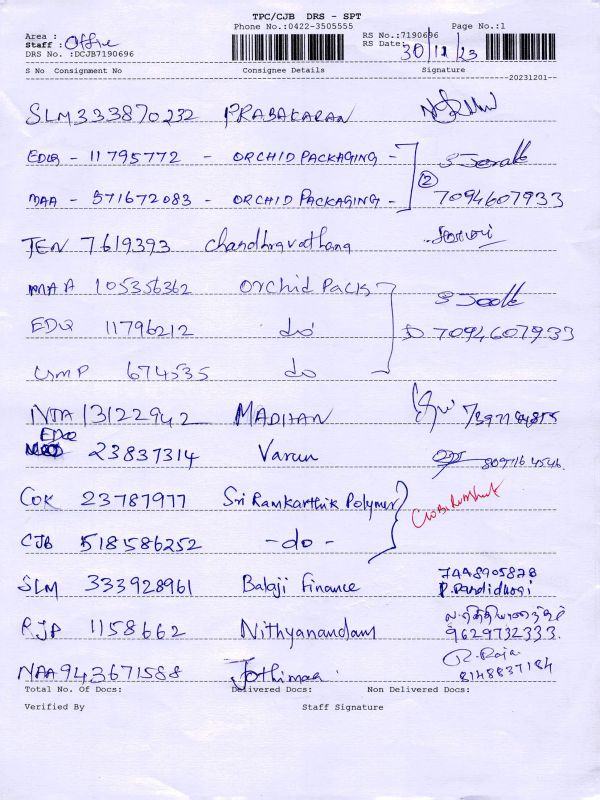 TPC/CJB DRS - SPT
Phone No.:0422-3505555 Page No.:1
Area :
Staff : Office
RS No.:7190696
RS Date: 30/12/23
DRS No. :DCJB7190696
S No Consignment No Consignee Details Signature
20231201
SLM 333870232 PRABAKARAN
EDQ - 11795772 - ORCHID PACKAGING -
MAA - 571672083 - ORCHID PACKAGING - (2) 7094607933
TEN 7619393 Chandhravathana
MAA 105356362 Orchid Pack
EDQ 11796212 do 7094607933
674535 do
NJA 13122942 MADHAN
EDQ 23837314 Varun
COK 23787977 Sri Ramkarthik Polymer
CJB 518586252 - do -
SLM 333928961 Balaji finance 7448905878
RJP 1158662 Nithyanandam 9629732333.
NAA 943671588 R. Raja 8148837184
Total No. Of Docs: Delivered Docs: Non Delivered Docs:
Verified By Staff Signature